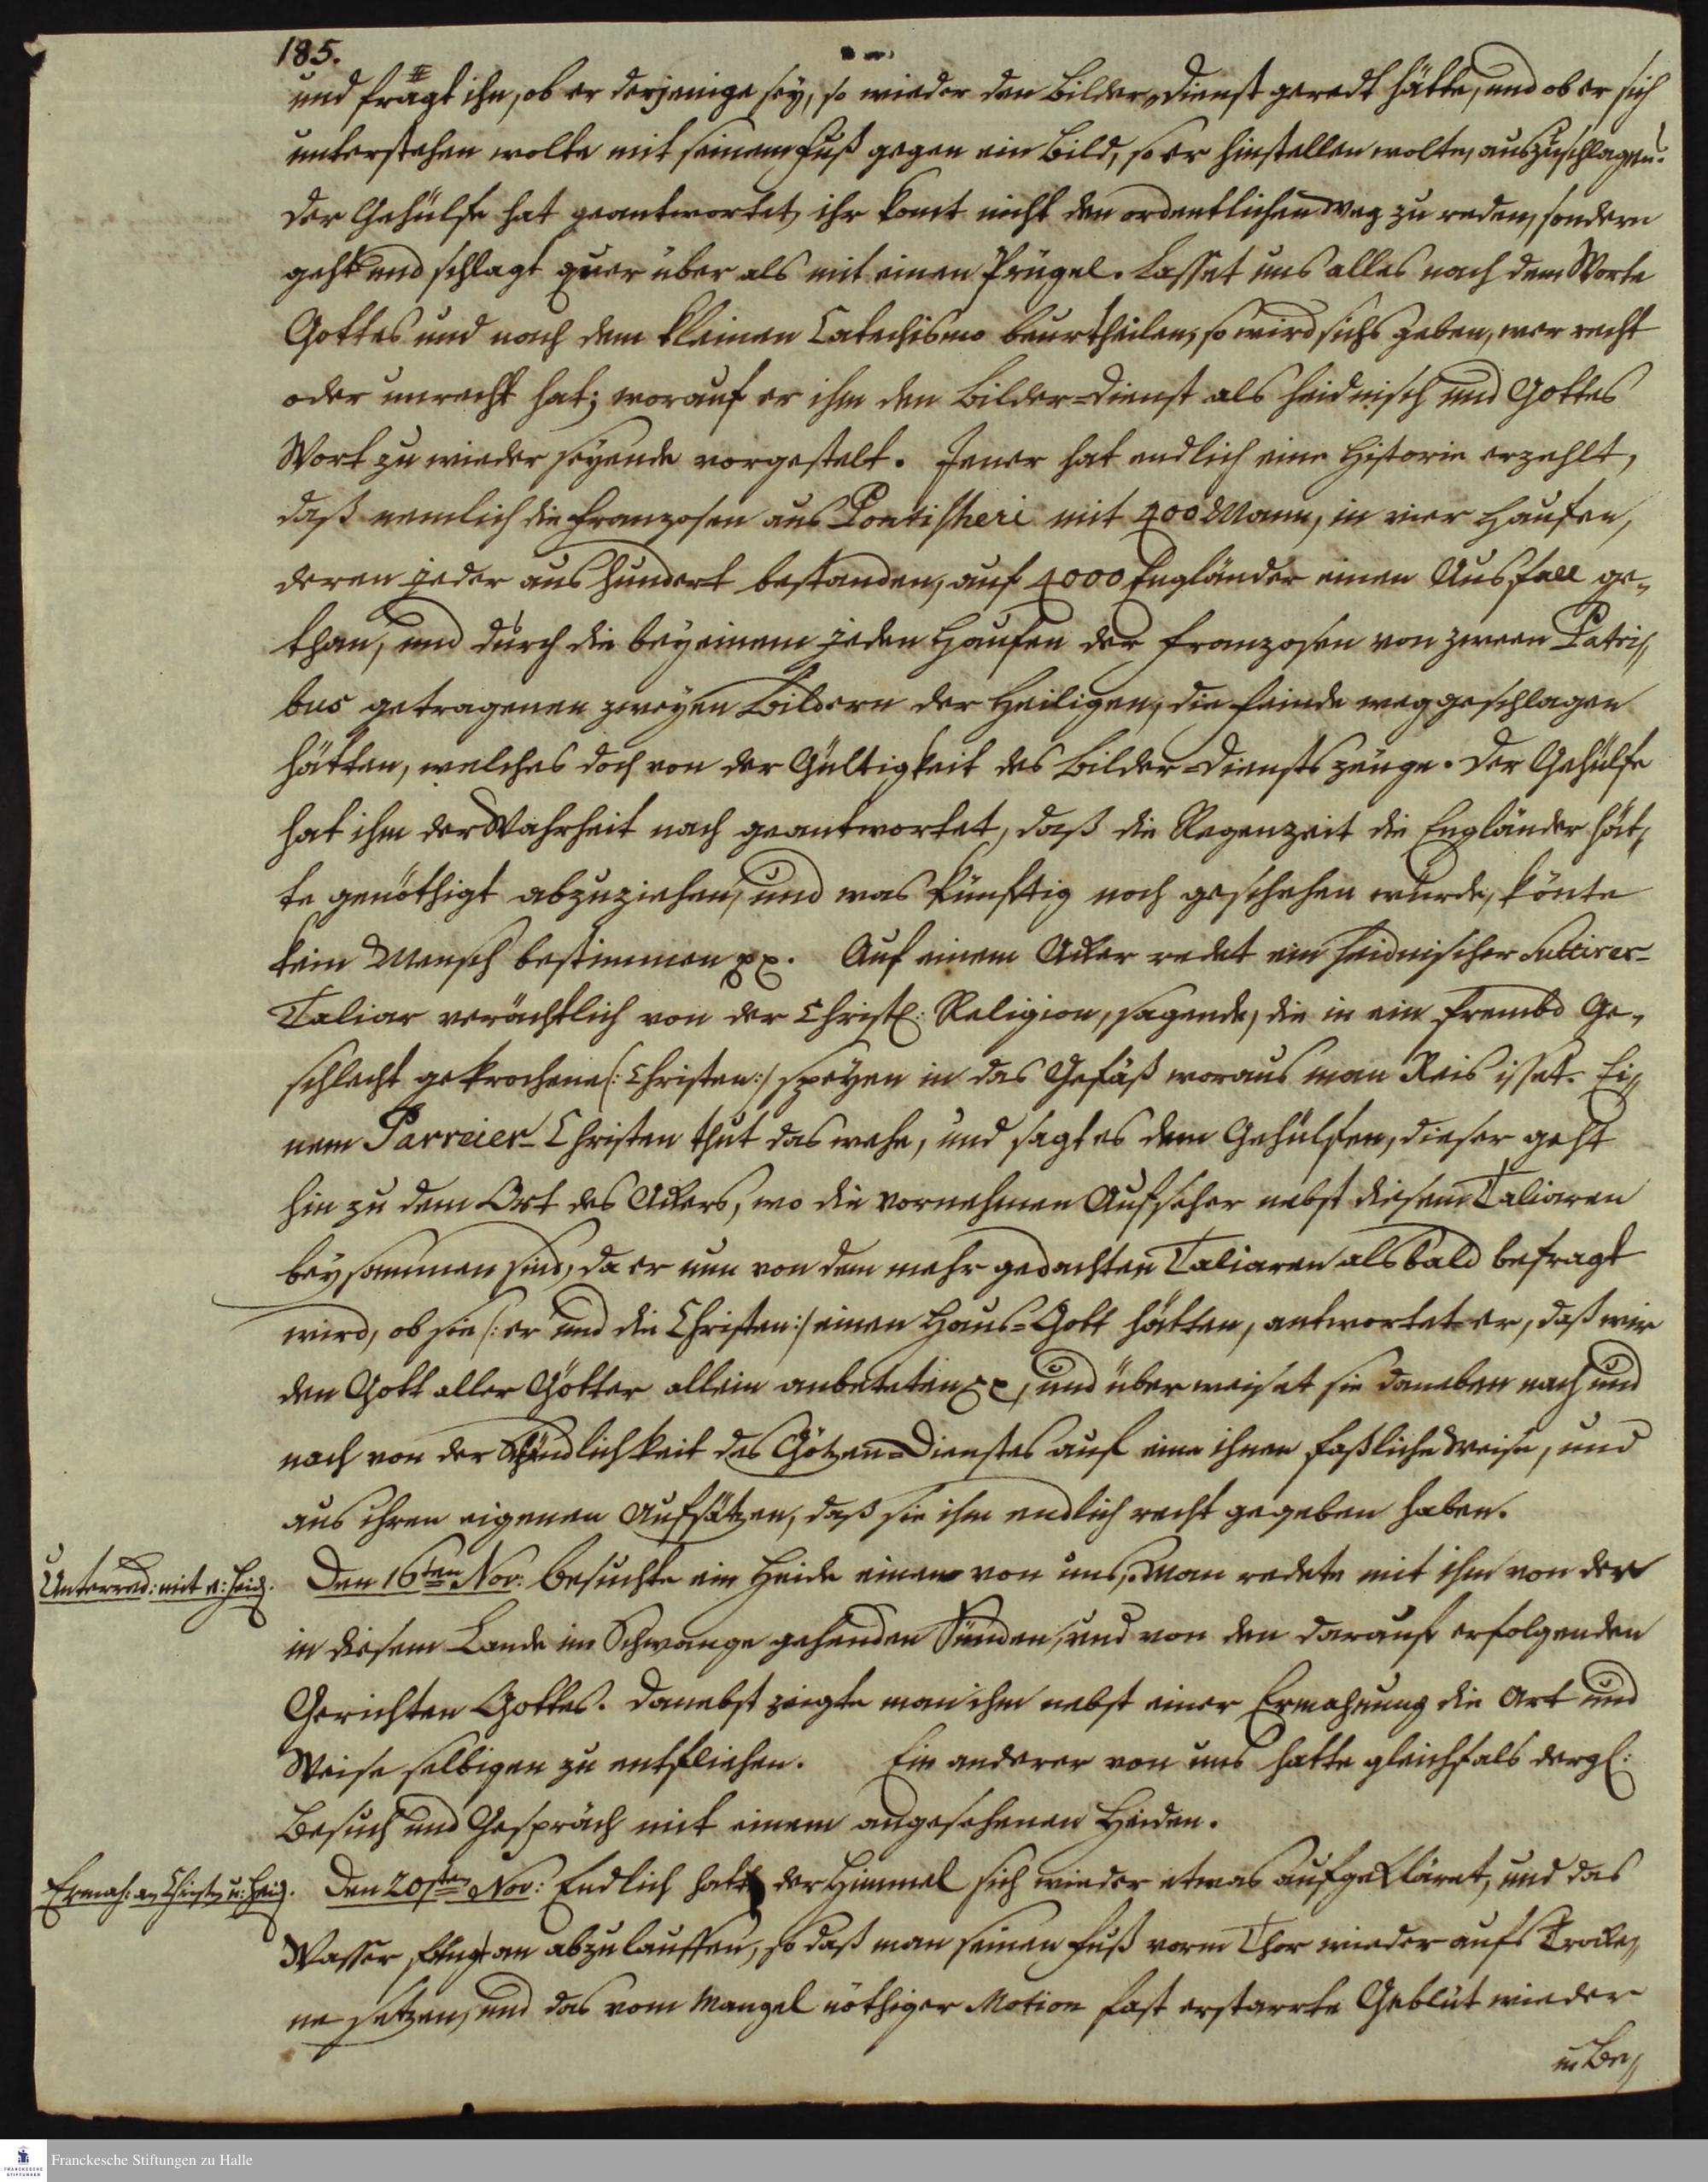 185.
und fragt ihn, ob er derjenige sey, so wieder den Bilder-Dienst geredt hätte, und ob er sich
unterstehen wolte mit seinem Fuß gegen ein Bild, so er hinstellen wolte, auszuschlagen.
Der Gehülfe hat geantwortet, ihr komt nicht den ordentlichen Weg zu reden, sondern
geht und schlagt quer über als mit einen Prügel. Lasset uns alles nach dem Worte
Gottes und nach dem kleinen Catechismo beurtheilen, so wird sichs geben, wer recht
oder unrecht hat; worauf er ihm den Bilder-Dienst als heidnisch und Gottes
Wort zu wieder seyende vorgestelt. Jener hat endlich eine Historie erzehlt,
daß nemlich die Franzosen aus Pontischeri mit 400 Mann, in vier Haufen,
deren jeder aus hundert bestanden, auf 4000 Engländer einen Ausfall ge-
than, und durch die bey einem jeden Haufen der Franzosen von zween Patri-
bus getragenen zweyen Bildern der Heiligen, die Feinde weggeschlagen
hätten, welches doch von der Gültigkeit des Bilder-Diensts zeuge. Der Gehülfe
hat ihm der Wahrheit nach geantwortet, daß die Regenzeit die Engländer hät-
te genöthigt abzuziehen, und was künftig noch geschehen würde, könte
kein Mensch bestimmen pp. Auf einem Acker redet ein heidnischer Suttirer-
Taliar verächtlich von der Christl: Religion, sagende, die in ein frembd Ge-
schlecht gekrochene (: Christen:) speyen in das Gefäß woraus man Reis isset. Ei-
nem Parreier-Christen thut das wehe, und sagt es dem Gehülfen, dieser geht
hin zu dem Ort des Ackers, wo die vornehmen Aufseher nebst diesem Taliaren
beysammen sind, da er nun von dem mehr gedachten Taliaren alsbald befragt
wird, ob sie (: er und die Christen:) einen Haus-Gott hätten, antwortet er, daß wir
den Gott aller Götter allein anbeteten pp, und überweiset sie daneben nach und
nach von der Schändlichkeit des Götzen-Dienstes auf eine ihnen faßliche Weise, und
aus ihren eigenen Aufsätzen, daß sie ihm endlich recht gegeben haben.
Unterred: mit e: Heid.
Den 16ten Nov: besuchte ein Heide einen von uns, man redete mit ihm von der
in diesem Lande im Schwange gehenden Sünden, und von den darauf erfolgenden
Gerichten Gottes. Danebst zeigte man ihm nebst einer Ermahnung die Art und
Weise selbigen zu entfliehen. Ein anderer von uns hatte gleichfals dergl:
Besuch und Gespräch mit einem angesehenen Heiden.
Ermah: an Christ u: Heid.
Den 20sten Nov: Endlich hatte der Himmel sich wieder etwas aufgekläret, und das
Wasser fing an abzulauffen, so daß man seinen Fuß vorm Thor wieder aufs Trocke-
ne setzen, und das vom Mangel nöthiger Motion fast erstarrte Geblüt wieder
in Be-
Franckesche Stiftungen zu Halle